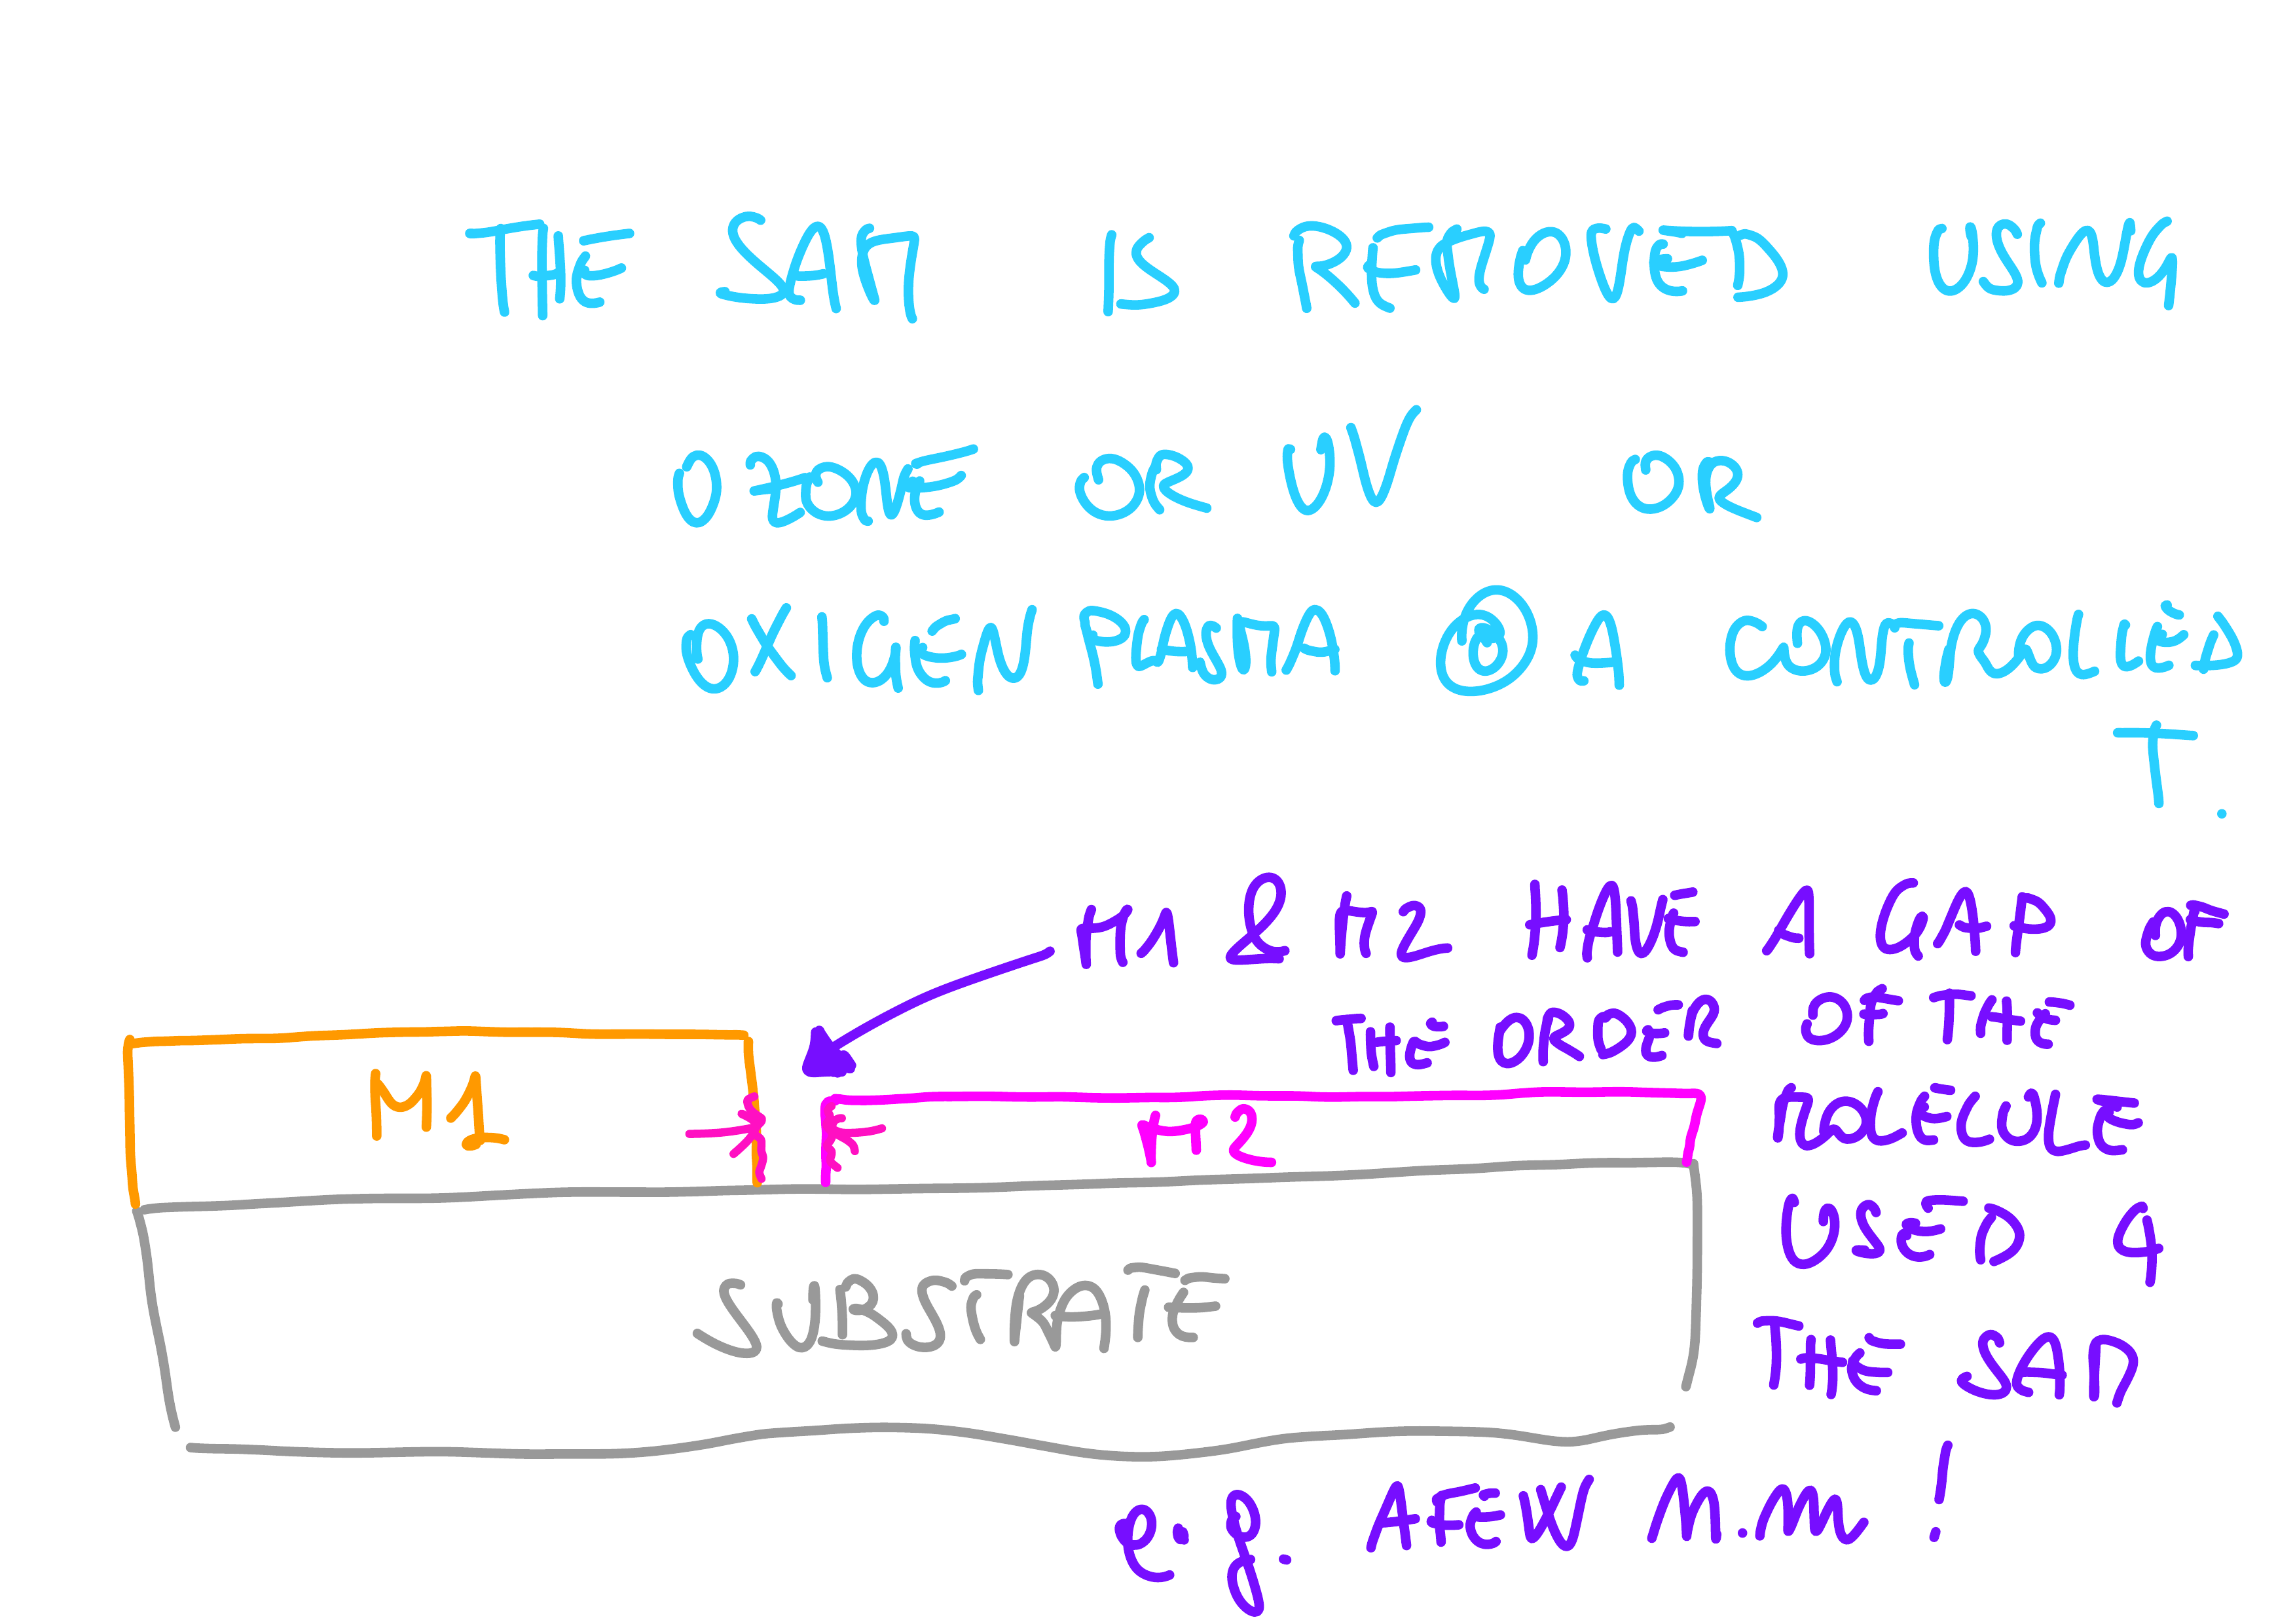 THE SAM IS REMOVED USING
OZONE OR UV OR
OXIGEN PLASMA @ A CONTROLLED
T.
M1 & M2 HAVE A GAP OF
THE ORDER OF THE
MOLECULE
USED 4
THE SAM
!
M1
M2
SUBSTRATE
e.g. A FEW n.m